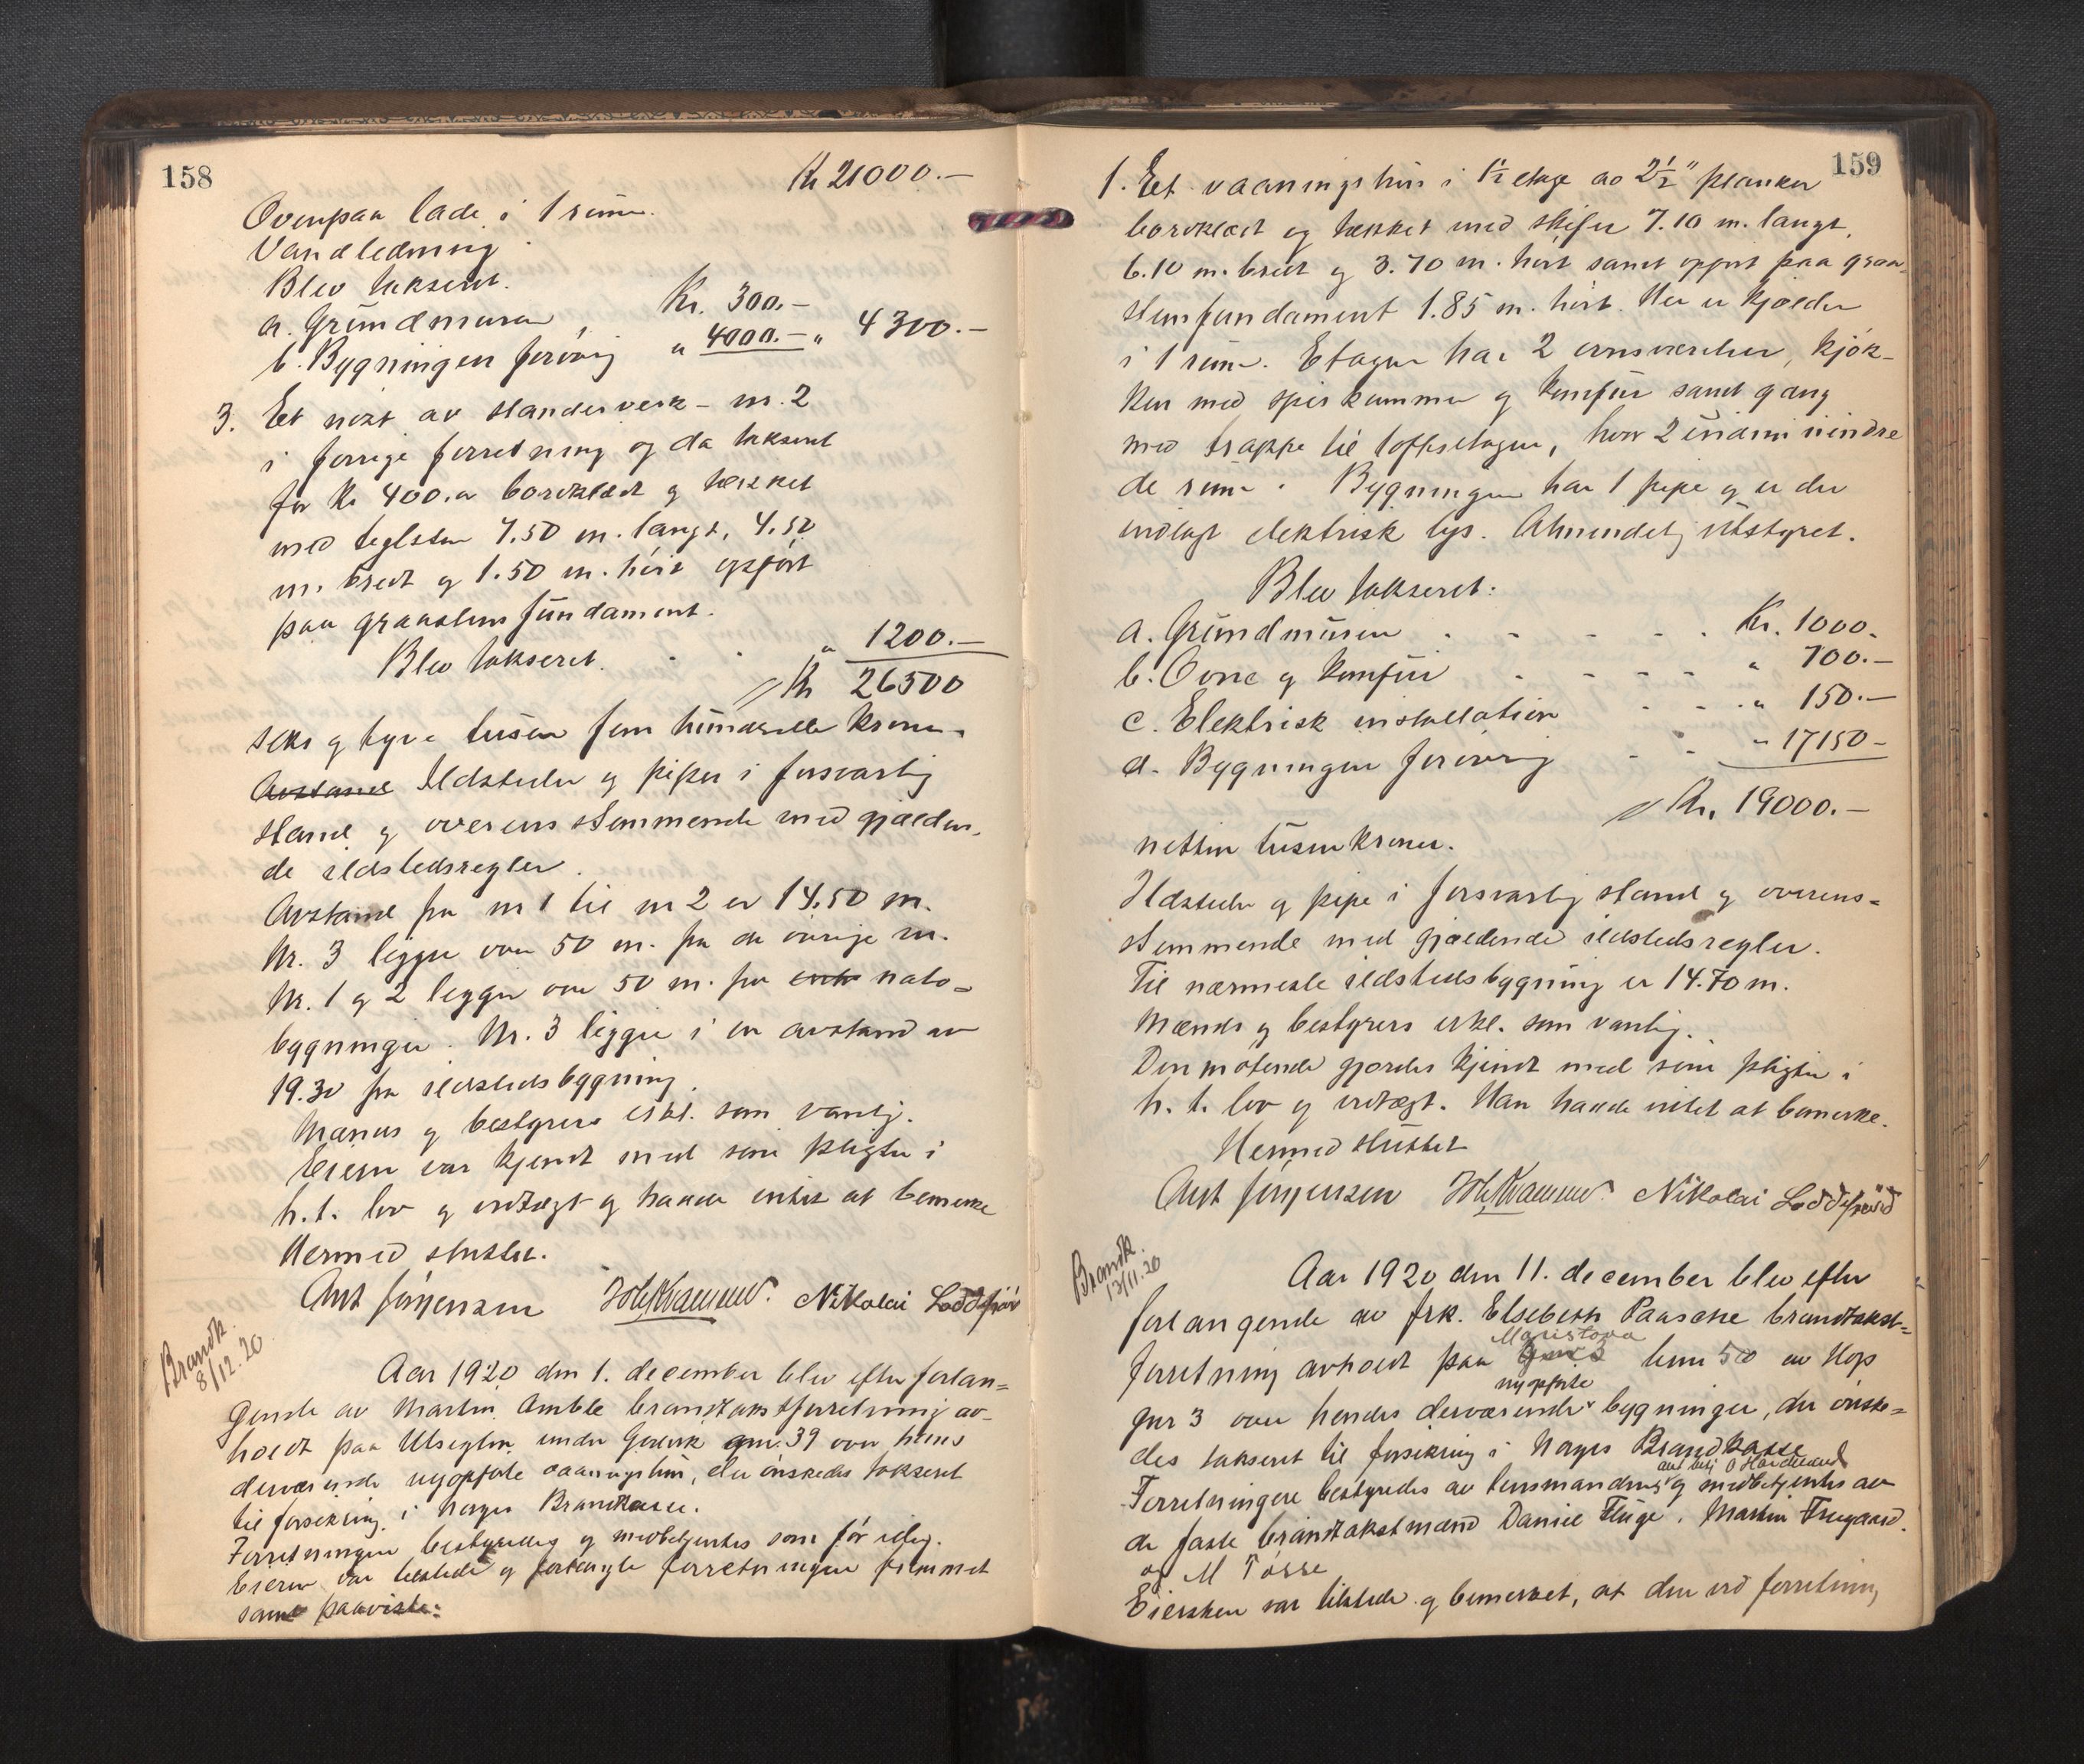 158
Kr 21000.-
Ovenpaa lade i 1 rum.
Vandledning.
Blev takseret.
a. Grundmuren Kr. 300.-
b. Bygningen forøvrig " 4000.- " 4300.-
3. Et nøst av standerverk - nr. 2
i forrige forretning og da takseret
for kr 400.- er bordklædt og tækket
med teglsten 7.50 m. langt, 4.50
m. bredt og 1.50 m. høit opført
paa graastens fundament.
Blev takseret. " 1200.-
Kr 26500
seks og tyve tusen fem hundrede kroner.
Avstand Ildsteder og piper i forsvarlig
stand og overensstemmende med gjælden-
de ildstedsregler.
Avstand fra nr 1 til nr 2 er 14.50 m.
Nr. 3 ligger over 50 m. fra de øvrige nr.
Nr. 1 og 2 ligger over 50 m. fra nabo-
bygninger. Nr. 3 ligger i en avstand av
19.30 fra ildstedsbygning.
Mænds og bestyrers erkl. som vanlig.
Eieren var kjendt med sine pligter i
h. t. lov og vedtægt og hadde intet at bemerke
Hermed sluttet.
Ant Jørgensen Joh Kvammen. Nikolai Loddefjord
Brandk.
8/12.20
Aar 1920 den 1. december blev efter forlan=
gende av Martin Amble brandtakstforretning av-
holdt paa under gnr. 39 over hans
derværende nyopførte vaaningshus, der ønskedes takseret
til forsikring i Norges Brandkasse.
Forretningen bestyredes og medbetjentes som før idag.
Eieren var tilstede og forlangte forretningen fremmet
samt paaviste:
159
1. Et vaaningshus i 1½ etage av 2½" planker
bordklædt og tækket med skifer 7.10 m. langt,
6.10 m. bredt og 3.70 m. høit samt opført paa graa-
stensfundament 1.85 m. høit. Her er kjælder
i 1 rum. Etagen har 2 værelser, kjøk-
ken med spiskammer og komfur samt gang
med trappe til loftsetagen, hvor 2 uindrede
de rum. Bygningen har 1 pipe og er der
indlagt elektrisk lys. Almindelig utstyret.
Blev takseret:
a. Grundmuren . - - - . Kr. 1000.
b. Ovne og komfur . - - - - " 700.-
c. Elektrisk installation . - . " 150.-
d. Bygningen forøvrig - - " 17150-
Kr. 19000.-
nitten tusen kroner.
Ildsteder og pipe i forsvarlig stand og overens=
stemmende med gjældende ildstedsregler.
Til nærmeste ildstedsbygning er 14.70 m.
Mænds og bestyrers erkl. som vanlig.
Den møtende gjordes kjendt med sine pligter i
h. t. lov og vedtægt. Han hadde intet at bemerke.
Hermed sluttet
Ant Jørgensen Joh Kvammen. Nikolai Loddefjord
Brandk.
13/11.20
Aar 1920 den 11. december blev efter
forlangende av frk. Elsebeth Paasche brandtakst=
forretning avholdt paa Maristova bnr 50 av Hop
gnr 3 over hendes derværende nyopførte bygninger, der ønske=
des takseret til forsikring i Norges Brandkasse
Forretningen bestyredes av lensmanden og medbetjentes av
de faste brandtakstmænd Daniel Fluge, Martin
og M Tøsse
Eiersken var tilstede og bemerket, at den ved forretning